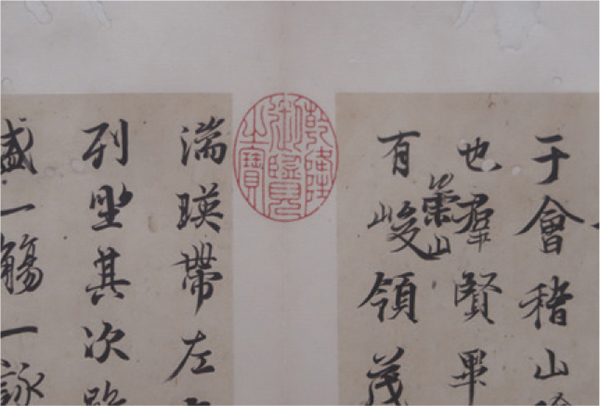 于會稽山
也群賢畢
有崇山峻領茂
乾隆
御覽
之寶
湍暎帶左
列坐其次
盛一觴一詠